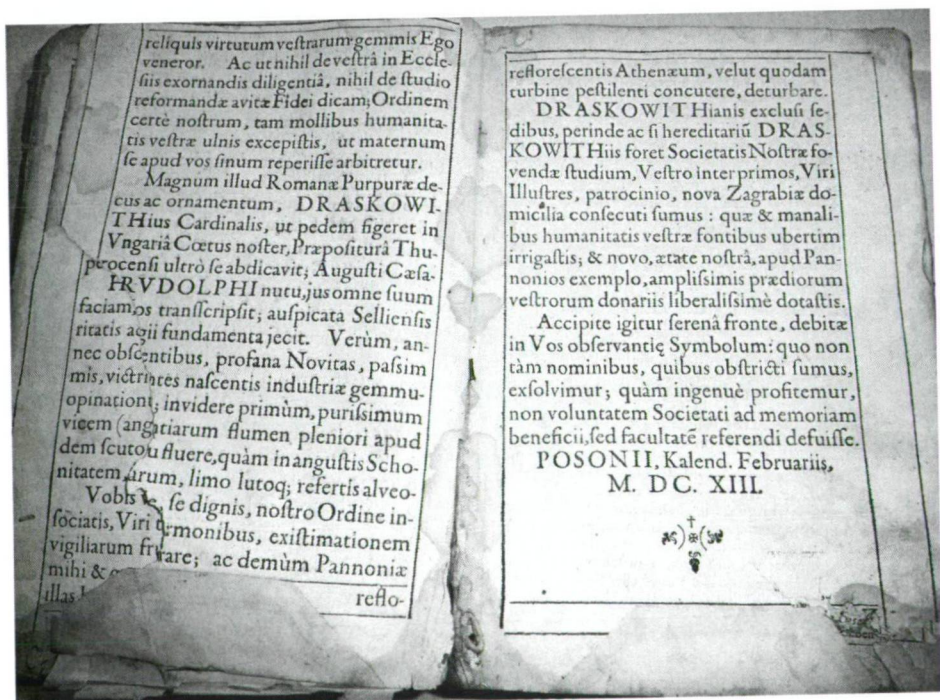 reliquis virtutum veſtrarum gemmis Ego
veneror. Ac ut nihil de veſtrâ in Eccle-
ſiis exornandis diligentiâ, nihil de ſtudio
reformandæ avitæ Fidei dicam; Ordinem
certè noſtrum, tam mollibus humanita-
tis veſtræ ulnis excepiſtis, ut maternum
ſe apud vos ſinum reperiſſe arbitretur.
Magnum illud Romanæ Purpuræ de-
cus ac ornamentum, DRASKOWI-
THius Cardinalis, ut pedem figeret in
Vngariâ Cœtus noſter, Præpoſiturâ Thu-
rocenſi ultrò ſe abdicavit; Auguſti Cæſa-
RVDOLPHI nutu, jus omne ſuum
tranſſcripſit; auſpicata Sellienſis
fundamenta jecit. Verùm, an-
nec obſ entibus, profana Novitas, paſſim
mis, naſcentis induſtriæ gemmu-
opinationi; invidere primùm, puriſſimum
vicem flumen pleniori apud
dem fluere, quàm in anguſtis Scho-
nitatem limo lutoq; refertis alveo-
Vobis ſe dignis, noſtro Ordine in-
ſociatis, Viri ermonibus, exiſtimationem
vigiliarum are; ac demùm Pannoniæ
mihi &
illas reflo-
refloreſcentis Athenæum, velut quodam
turbine peſtilenti concutere, deturbare.
DRASKOWITHianis excluſi ſe-
dibus, perinde ac ſi hereditariũ DRAS-
KOWITHiis foret Societatis Noſtræ fo-
vendæ ſtudium, Veſtro inter primos, Viri
Illuſtres, patrocinio, nova Zagrabiæ do-
micilia conſecuti ſumus : quæ & manali-
bus humanitatis veſtræ fontibus ubertim
irrigaſtis; & novo, ætate noſtrâ, apud Pan-
nonios exemplo, ampliſſimis prædiorum
veſtrorum donariis liberaliſſimè dotaſtis.
Accipite igitur ſerenâ fronte, debitæ
in Vos obſervantię Symbolum: quo non
tàm nominibus, quibus obſtricti ſumus,
exſolvimur; quàm ingenuè profitemur,
non voluntatem Societati ad memoriam
beneficii, ſed facultatẽ referendi defuiſſe.
POSONII, Kalend. Februariis,
M. DC. XIII.